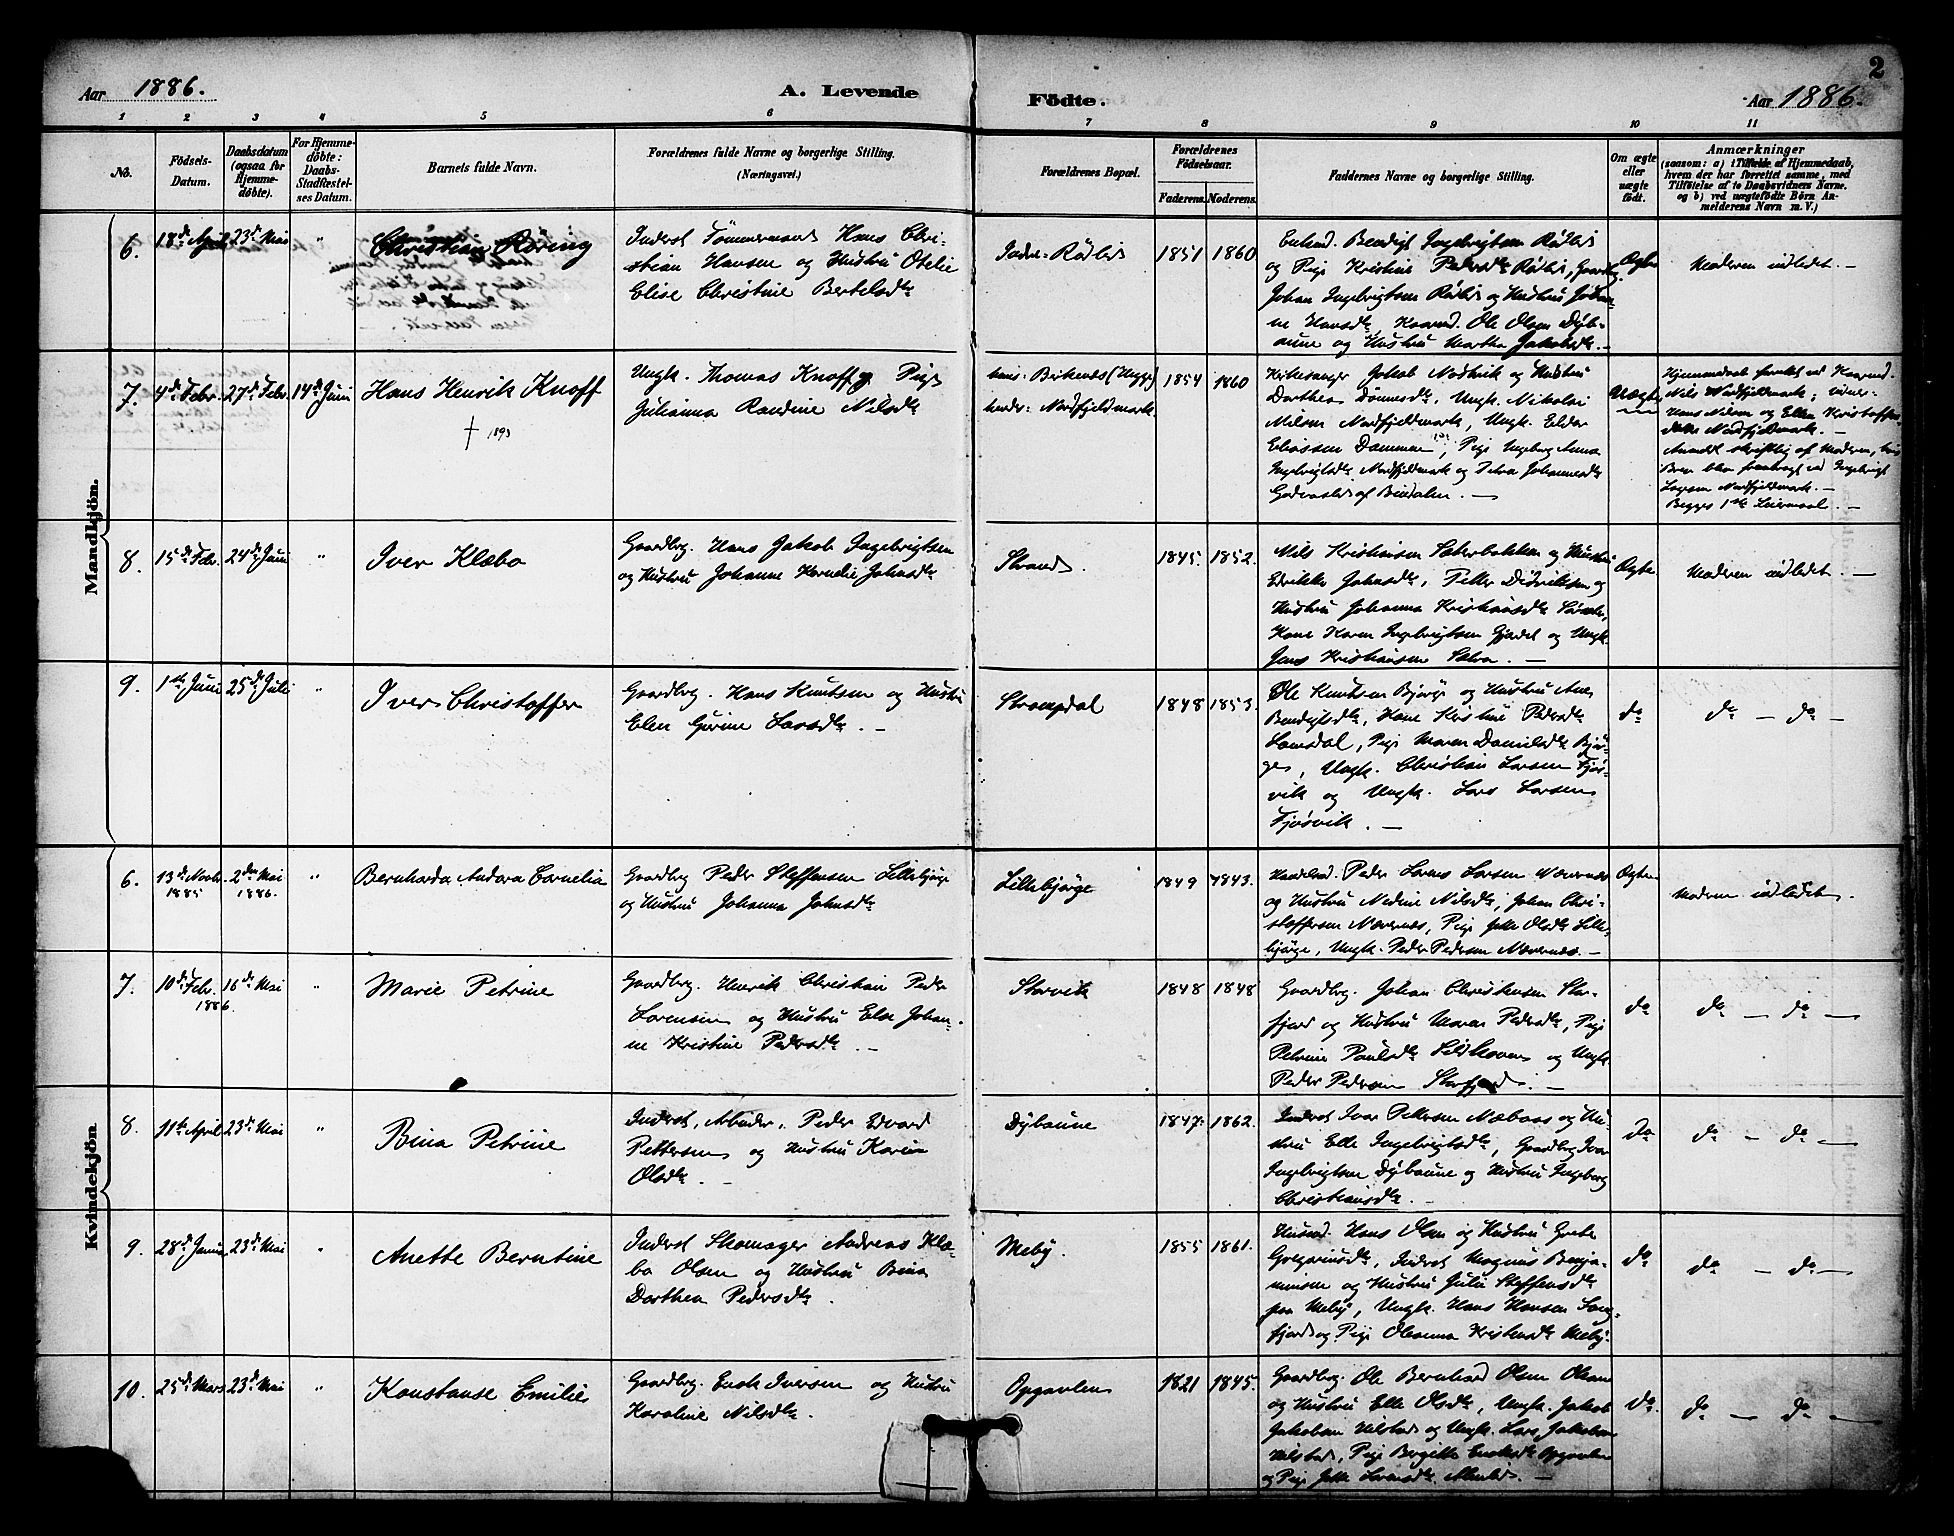 2
Aar 1886.
A. Levende
Födte.
Aar 1886.
1 2 3 4 5 6 7 8 9 10 11
No.
Födsels-
Datum.
Daabsdatum
(ogsaa for
Hjemme-
døbte).
For Hjemme-
døbte:
Daabs-
Stadfæstel-
ses Datum.
Barnets fulde Navn.
Forældrenes fulde Navne og borgerlige Stilling.
(Næringsvei.)
Forældrenes Bopæl.
Forældrenes
Födselsaar.
Faderens. Moderens.
Faddernes Navne og borgerlige Stilling.
Om ægte
eller
uægte
født.
Anmærkninger
(saasom: a) i Tilfælde af Hjemmedaab,
hvem der har forrettet samme, med
Tilføielse af to Daabsvidners Navne.
og b) ved uægtefødte Börn An-
melderens Navn m. V.)
Mandkjön.
6. 18de April 23de Mai "
Christian Röring
Inderst Tømmermand Hans Chri-
stian Hansen og Hustru Otelie
Elise Christine Bertelsdtr
1851 1860
Johan Ingebrigtsen
ne Hansdtr, Ole Olsen Dÿb-
aune og Hustru Martha Jakobsdtr. —
Ægte
Moderen indledet. —
7. 4de Febr. 27de Febr. 14de Juni
Hans Henrik Knoff
† 1893
Ungk. Thomas Knoff og Pige
Julianna Randine Nilsdtr
hans: Birknes (Ungk.)
hendes: Nordfjeldmark
1854 1860
Kirkesanger Jakob og Hustru
Dorthea Dønnesdtr, Ungk. Nikolai
Nilsen Nordfjeldmark, Ungk.
Eliassen Pige Ingeborg Anna
Ingebrigtsdtr Nordfjeldmark og Petra Johannesdtr
af Bindalen. —
Uægte
Hjemmedøbt forrettet ved
Nils Nordfjeldmark; vidner:
Hans Nilsen og Ellen Kristoffers-
datter Nordfjeldmark. —
Anmeldt skriftlig af Moderen,
Barn blev frembragt ved Ingebrigt
Larsen Nordfjeldmark. —
Begges 1ste Leiermaal. —
8. 15de Febr. 24de Juni "
Iver Klæbo
Gaardbrg. Hans Jakob Ingebrigtsen
og Hustru Johanne Kornelie Johnsdtr
Strand.
1845. 1852.
Nils Kristiansen Sæterbakken og Hustru
Edrikke Johnsdtr, Petter Didriksen og
Hustru Johanna Kristiansdtr
Kone Karen Ingebrigtsen og Ungk.
Jens Kristiansen —
Ægte
Moderen indledet. —
9. 1ste Juni 25de Juli "
Iver Christoffer
Gaardbrg. Hans Knutsen og Hustru
Elen Gurine Larsdtr. —
Strompdal
1848 1853.
Ole Knutsen Bjørge og Hustru Ane
Bendigtsdtr, Kone Kristine Pedersdtr
Lomsdal, Pige Maren Danielsdtr Bjør-
ge, Ungk. Christian Larsen Fjøs-
vik og Ungk. Lars Larsen
Fjøsvik. —
do
do — do —
Kvindekjön
6. 13de Novbr. 1885 2den Mai 1886. "
Bernharda Andora Cornelia
Gaardbrg Peder Steffensen Lillebjørge
og Hustru Johanna Johnsdtr
Lillebjørge
1849 1843.
Peder Larsen Nævernæs
og Hustru Nedine Nilsdtr, Johan Chri-
stoffersen Nævernæs, Pige Olsdtr Lille-
bjørge, Ungk. Peder Pedersen Nævernæs. —
Ægte
Moderen indledet.
7. 10de Febr. 1886. 16de Mai "
Marie Petrine
Gaardbrg. Henrik Christian Peder
Lorensen og Hustru Else Johan-
ne Kristine Pedersdtr. —
Storvik
1848 1848
Gaardbrg. Johan Christensen Stor-
fjord og Hustru Maren Pedersdtr, Pige
Petrine Paulsdtr og Ungk
Peder Pedersen Storfjord. —
do
do — do —
8. 11te April 23de Mai "
Bina Petrine
Inderst, Arbeider, Peder Edvard
Pettersen og Hustru Karine
Olsdtr. —
Dÿbaune
1847. 1862.
Inderst Ivar Pettersen og Hu-
stru Elle Ingebrigtsdtr, Gaardbrg Ivar
Ingebrigtsen Dÿbaune og Hustru Ingeborg
Christiansdtr. —
do
do — do —
9. 28de 23de Mai "
Anette Berntine
Inderst Skomager Andreas Klæ-
bo Olsen og Hustru Bina
Dorthea Pedersdtr.
Mebÿ.
1855 1861.
Husmd. Hans Olsen og Hustru Grete
Gregoriusdtr, Inderst Magnus Benja-
minsen og Hustru Julie Steffensdtr
paa Mebÿ, Ungk. Hans Hansen
og Pige Oleanna Kristensdtr Mebÿ.
do
do — do —
10. 25de Mars 23de Mai "
Konstanse Emilie
Gaardbrg. Enok Iversen og Hustru
Karoline Nilsdtr.
Opgaulen
1821 1845.
Gaardbrg. Ole Bernhard Olsen
og Hustru Elle Olsdtr, Ungk. Jakob
Jakobsen og Ungk. Lars Jakobsen
Pige Birgitte Enoksdtr Opgaulen
og Pige —
do.
do — do —